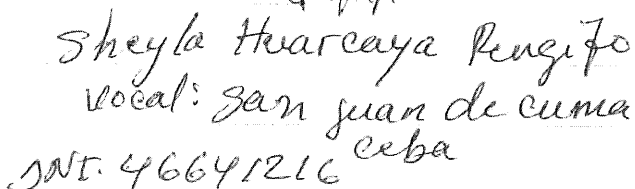 Sheyla Huarcaya Rengifo
Vocal: San Juan de cuma
ceba
DNI. 46641216